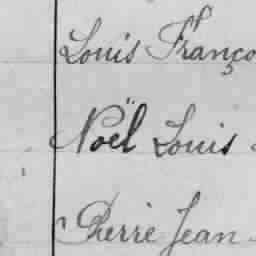 Louis Franço
Noël Louis
Pierre Jean